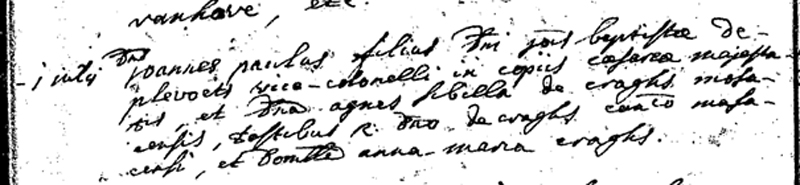 vanhove, etc.
1 july Dnus joannes paulus filius Dni jois baptistæ de-
plevoets vice-colonelli in copiis cæsareæ majesta-
tis, et Dna agnes sibilla de craghs mosa-
censis, testibus R. Dno de craghs cano mosa-
censi, et Domlla anna-maria craghs.